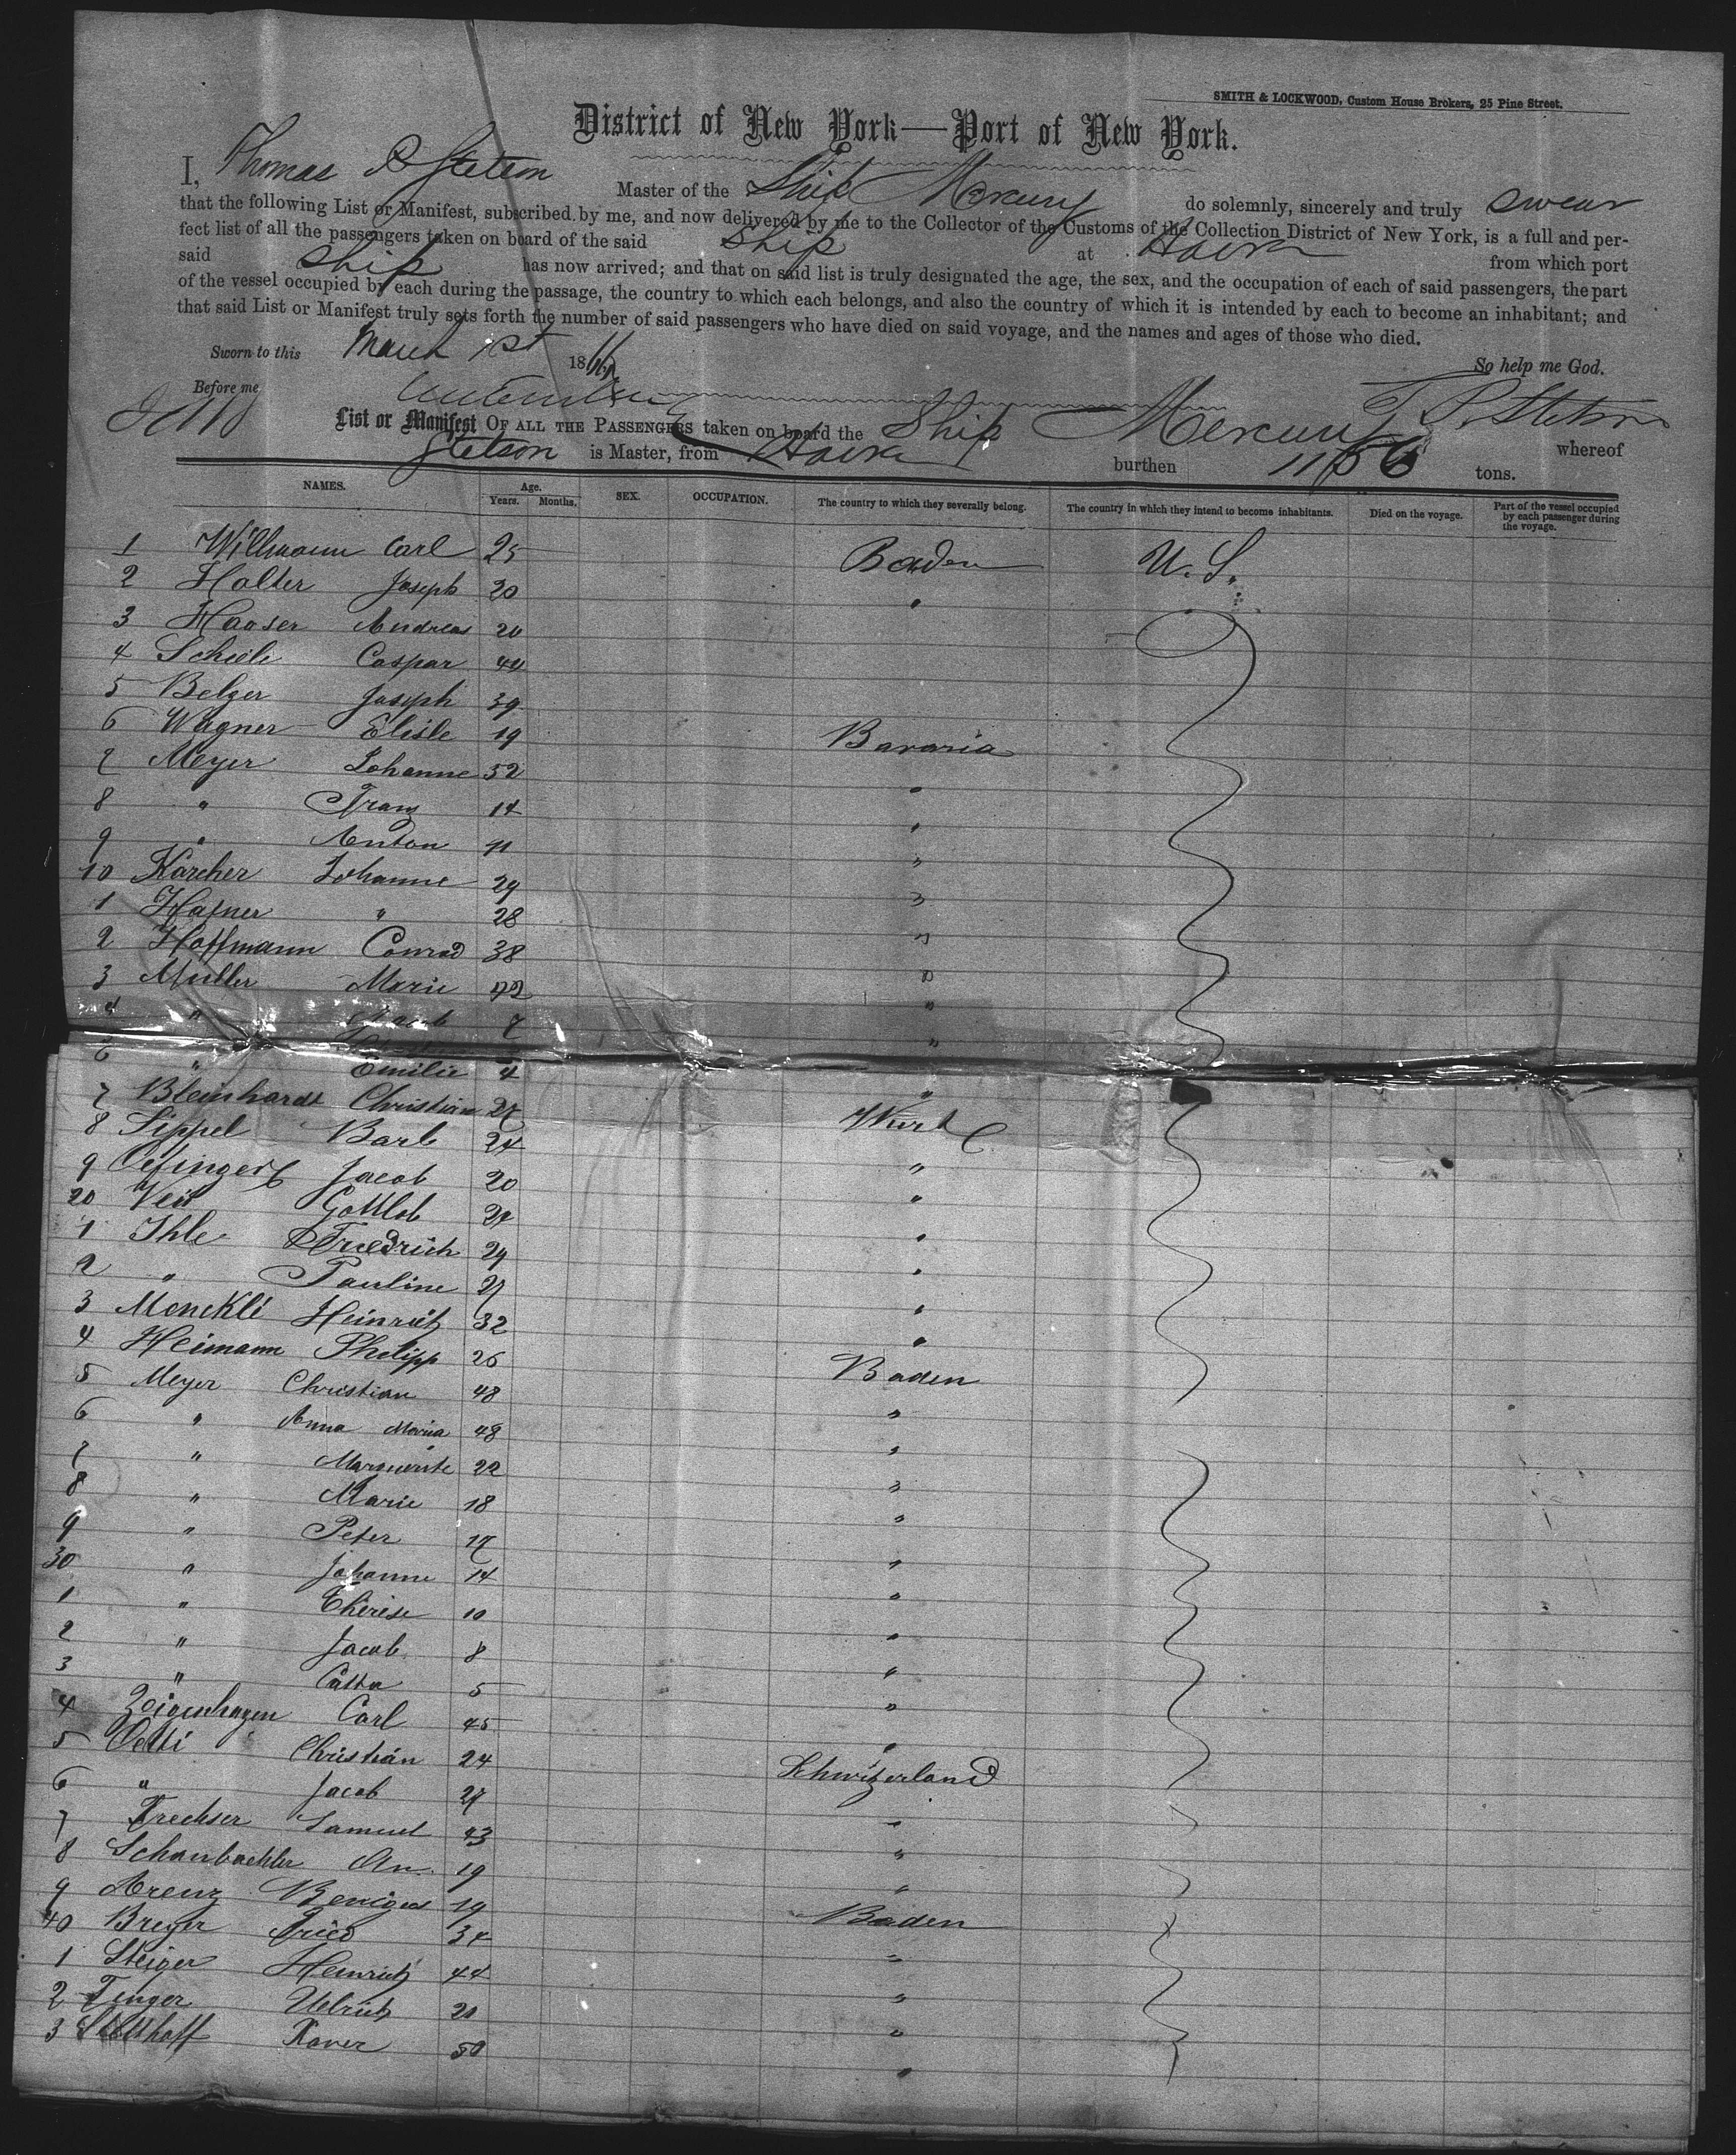 SMITH & LOCKWOOD, Custom House Brokers, 25 Pine Street.
District of New York—Port of New York.
I, Thomas P Stetson Master of the Ship Mercury do solemnly, sincerely and truly swear
that the following List or Manifest, subscribed by me, and now delivered by me to the Collector of the Customs of the Collection District of New York, is a full and per-
fect list of all the passengers taken on board of the said Ship at Havre from which port
said Ship has now arrived; and that on said list is truly designated the age, the sex, and the occupation of each of said passengers, the part
of the vessel occupied by each during the passage, the country to which each belongs, and also the country of which it is intended by each to become an inhabitant; and
that said List or Manifest truly sets forth the number of said passengers who have died on said voyage, and the names and ages of those who died.
Sworn to this March 1st 1866 So help me God.
Before me T. P. Stetson
List or Manifest OF ALL THE PASSENGERS taken on board the Ship Mercury whereof
Stetson is Master, from Havre burthen 1156 tons.
NAMES. Age. Years. Months. SEX. OCCUPATION. The country to which they severally belong. The country in which they intend to become inhabitants. Died on the voyage. Part of the vessel occupied by each passenger during the voyage.
1 Willmann Carl 25 Baden U. S.
2 Halter Joseph 20 "
3 Haoser Andreas 20
4 Scheele Caspar 40
5 Belzer Joseph 39
6 Wagner Elisle 19 Bavaria
7 Meyer Johanne 52 "
8 " Franz 14 "
9 " Anton 11 "
10 Karcher Johanne 29 "
1 Hafner " 28 "
2 Hoffmann Conrad 38 "
3 Muller Marie 42 "
4 " Jacob 7 "
6 " Emilie 4 "
7 Bleinhardt Christian 27 Wurt
8 Sippel Barb 24 "
9 Oefinger Jacob 20 "
20 Veit Gottlob 27 "
1 Ihle Friedrich 29 "
2 " Pauline 27 "
3 Monckli Heinrich 32 "
4 Heimann Philipp 26 Baden
5 Meyer Christian 48 "
6 " Anna Maria 48 "
7 " Marguerite 22 "
8 " Marie 18 "
9 " Peter 17 "
30 " Johanne 14 "
1 " Therese 10 "
2 " Jacob 8 "
3 " 5 "
4 Zeigenhagen Carl 45 "
5 Oetti Christian 24 Schwitzerland
6 " Jacob 27 "
7 Trechser Samuel 43 "
8 Schanbachler An. 19 "
9 Arenz 19 Baden
40 Breyer Fried 34 "
1 Steiger Heinrich 44 "
2 Finger Uelrich 20 "
3 Xaver 50 "